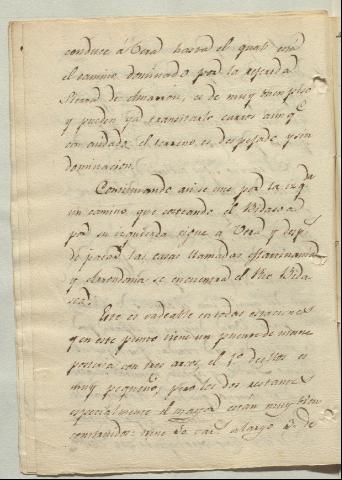 conduce á Vera hasta el qual está
el camino dominado por la referida
Sierra de es de muy buen piso
y pueden ya transitarlo carros aunq.e
con cuidado el terreno es despejado y sin
dominacion.
Continuando asi se une por la izq.da
un camino que costeando el Vidasoa
por su izquierda sigue á Vera y desp.s
de pasar las casas llamadas
y se encuentra el Rio Vida
soa.
Este es vadeable en todas estaciones
y en este punto tiene un puente de mam
posteria con tres arcos, el 1.o de ellos es
muy pequeño, pero los dos restantes
especialmente el mayor están muy bien
construidos: tiene de largo de